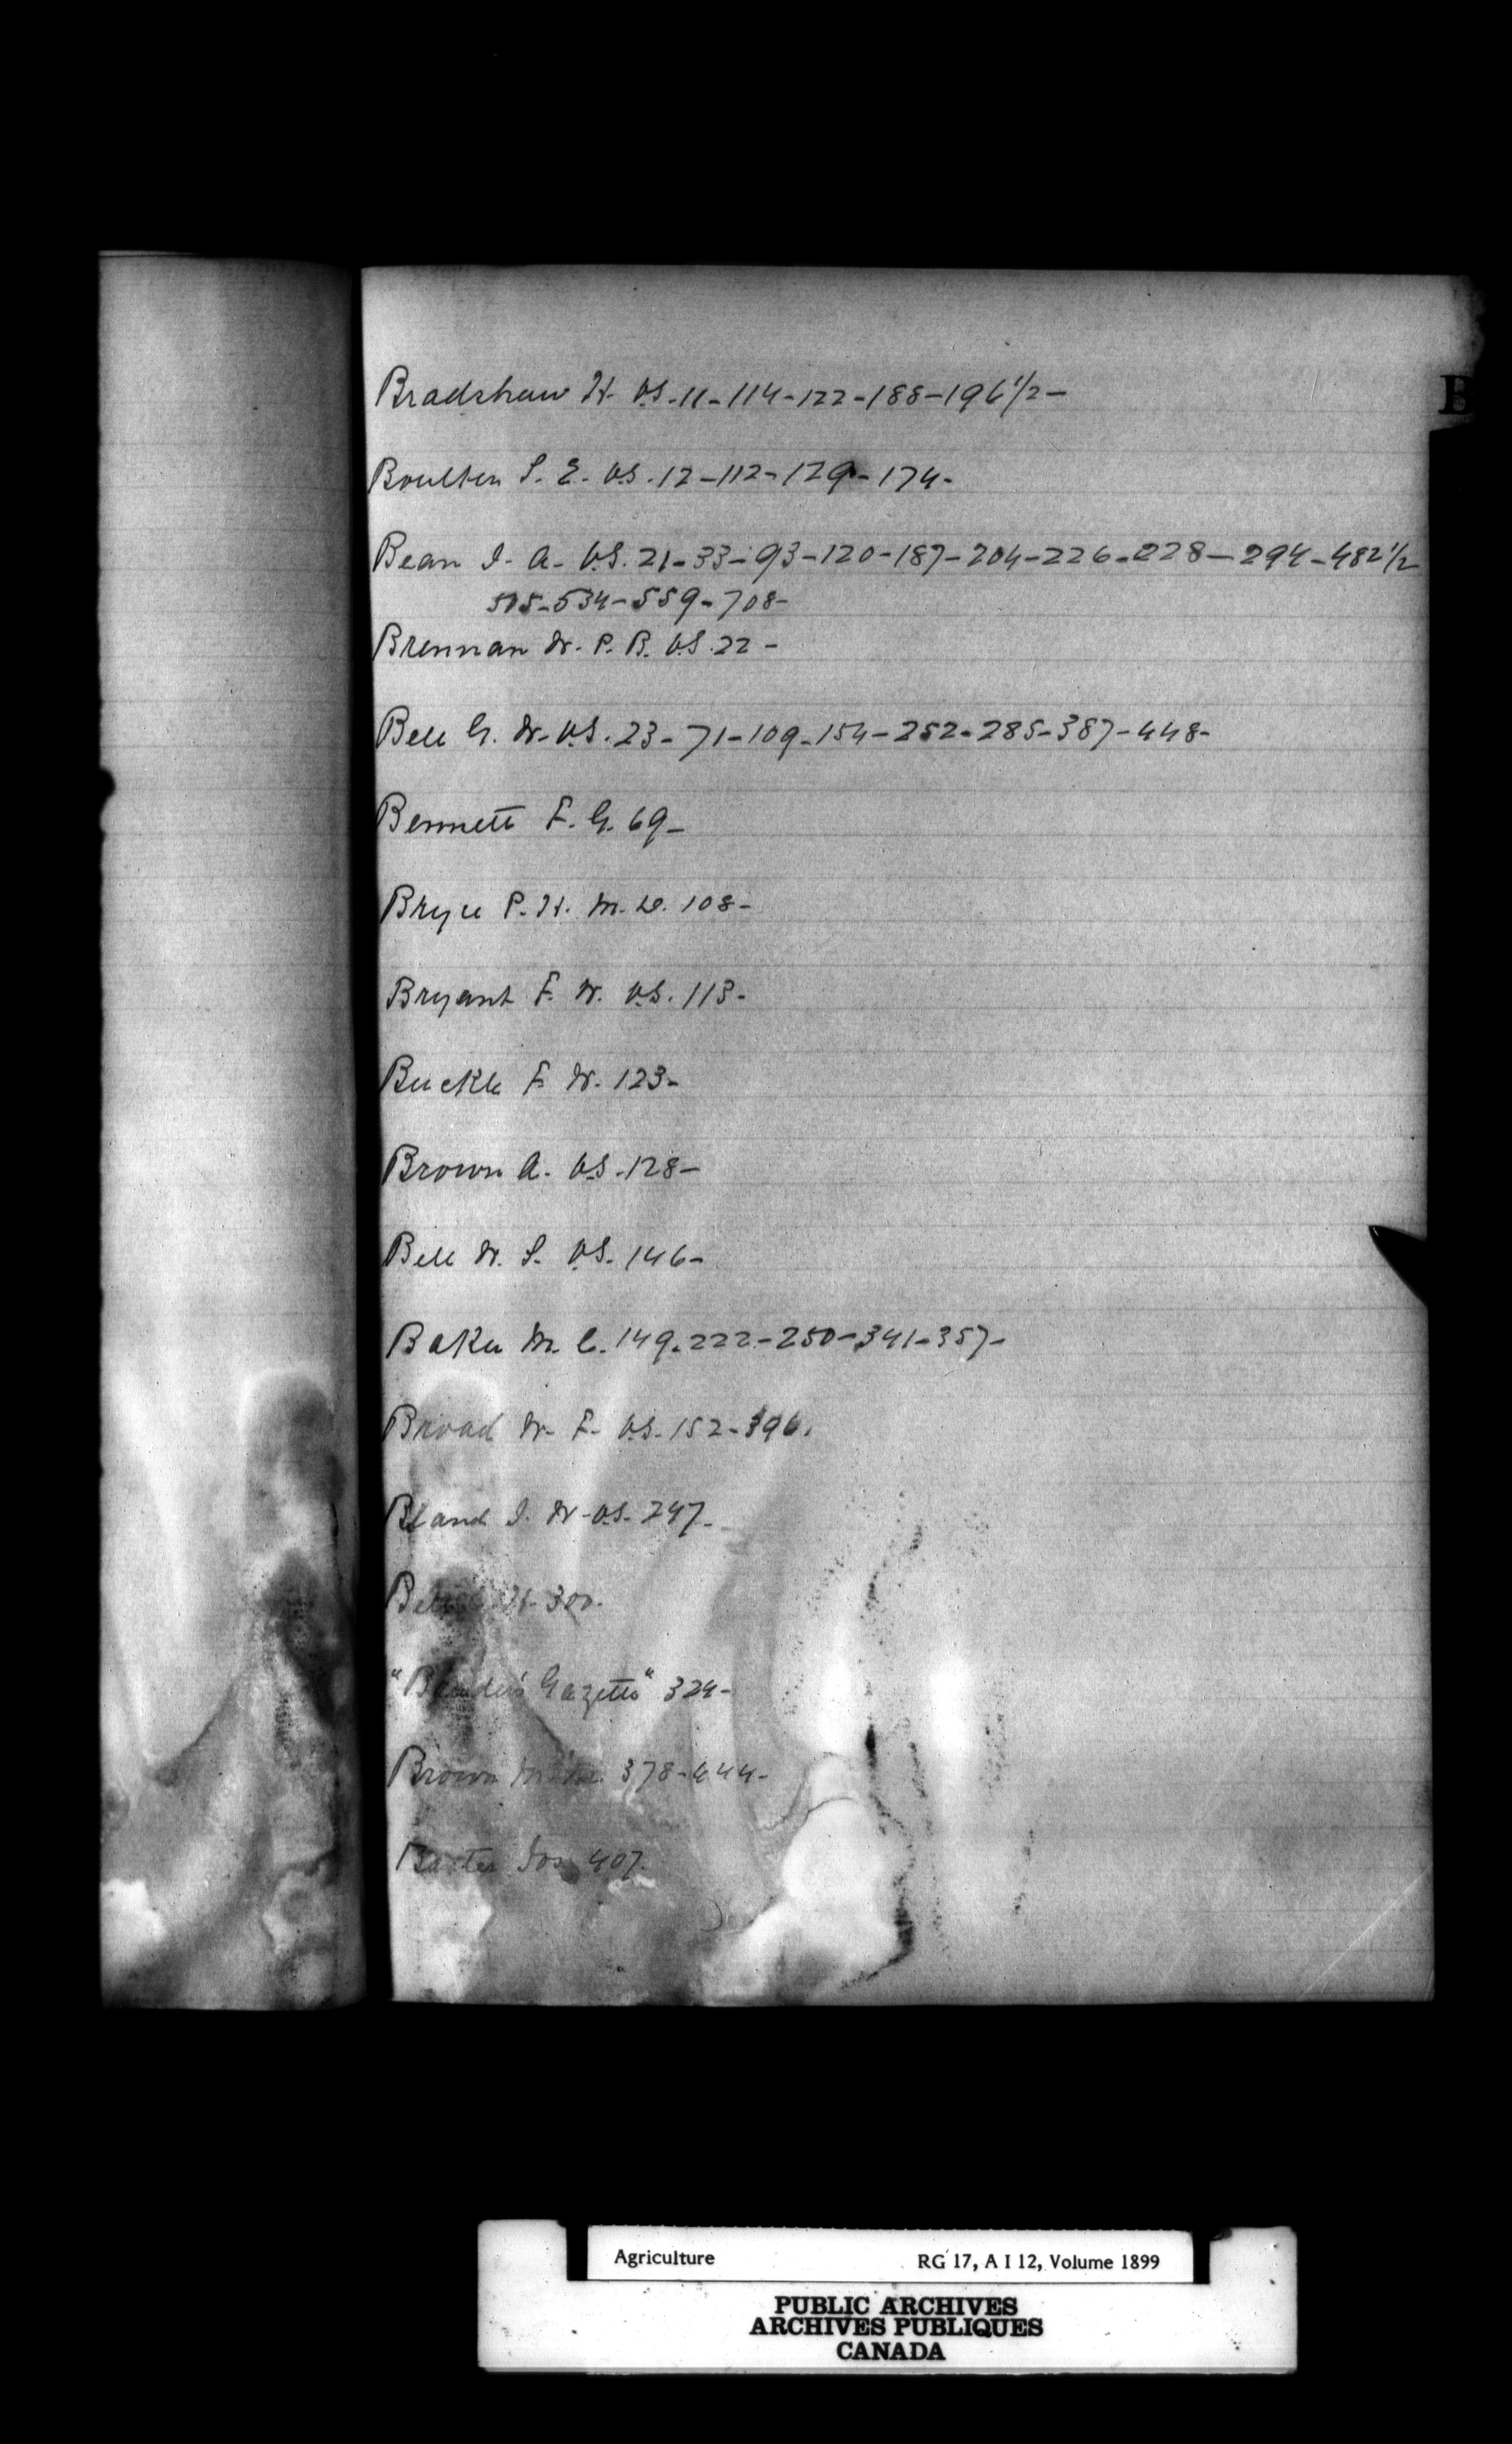 B
Bradshaw H. V.S. 11-114-122-188-196 1/2-
Boulter S. E. V.S. 12-112-129-174-
Bean J. A. V.S. 21-33-93-120-187-204-226-228-294-482 1/2
505-534-559-708-
Brennan W. P. B. V.S. 22-
Bell G. W. V.S. 23-71-109-154-252-285-387-448-
Bennett F. G. 69-
Bryce P. H. M.D. 108-
Bryant F. W. V.S. 113-
Buckle F. W. 123-
Brown A. V.S. 128-
Bell W. S. V.S. 146-
Baker M. C. 149-222-250-341-357-
Broad W. F. V.S. 152-396.
Bland J. W. V.S. 247-
H. 300-
"Breeder's Gazette" 324-
Brown 378-444-
Baxter Jos 407.
Agriculture RG 17, A I 12, Volume 1899
PUBLIC ARCHIVES
ARCHIVES PUBLIQUES
CANADA